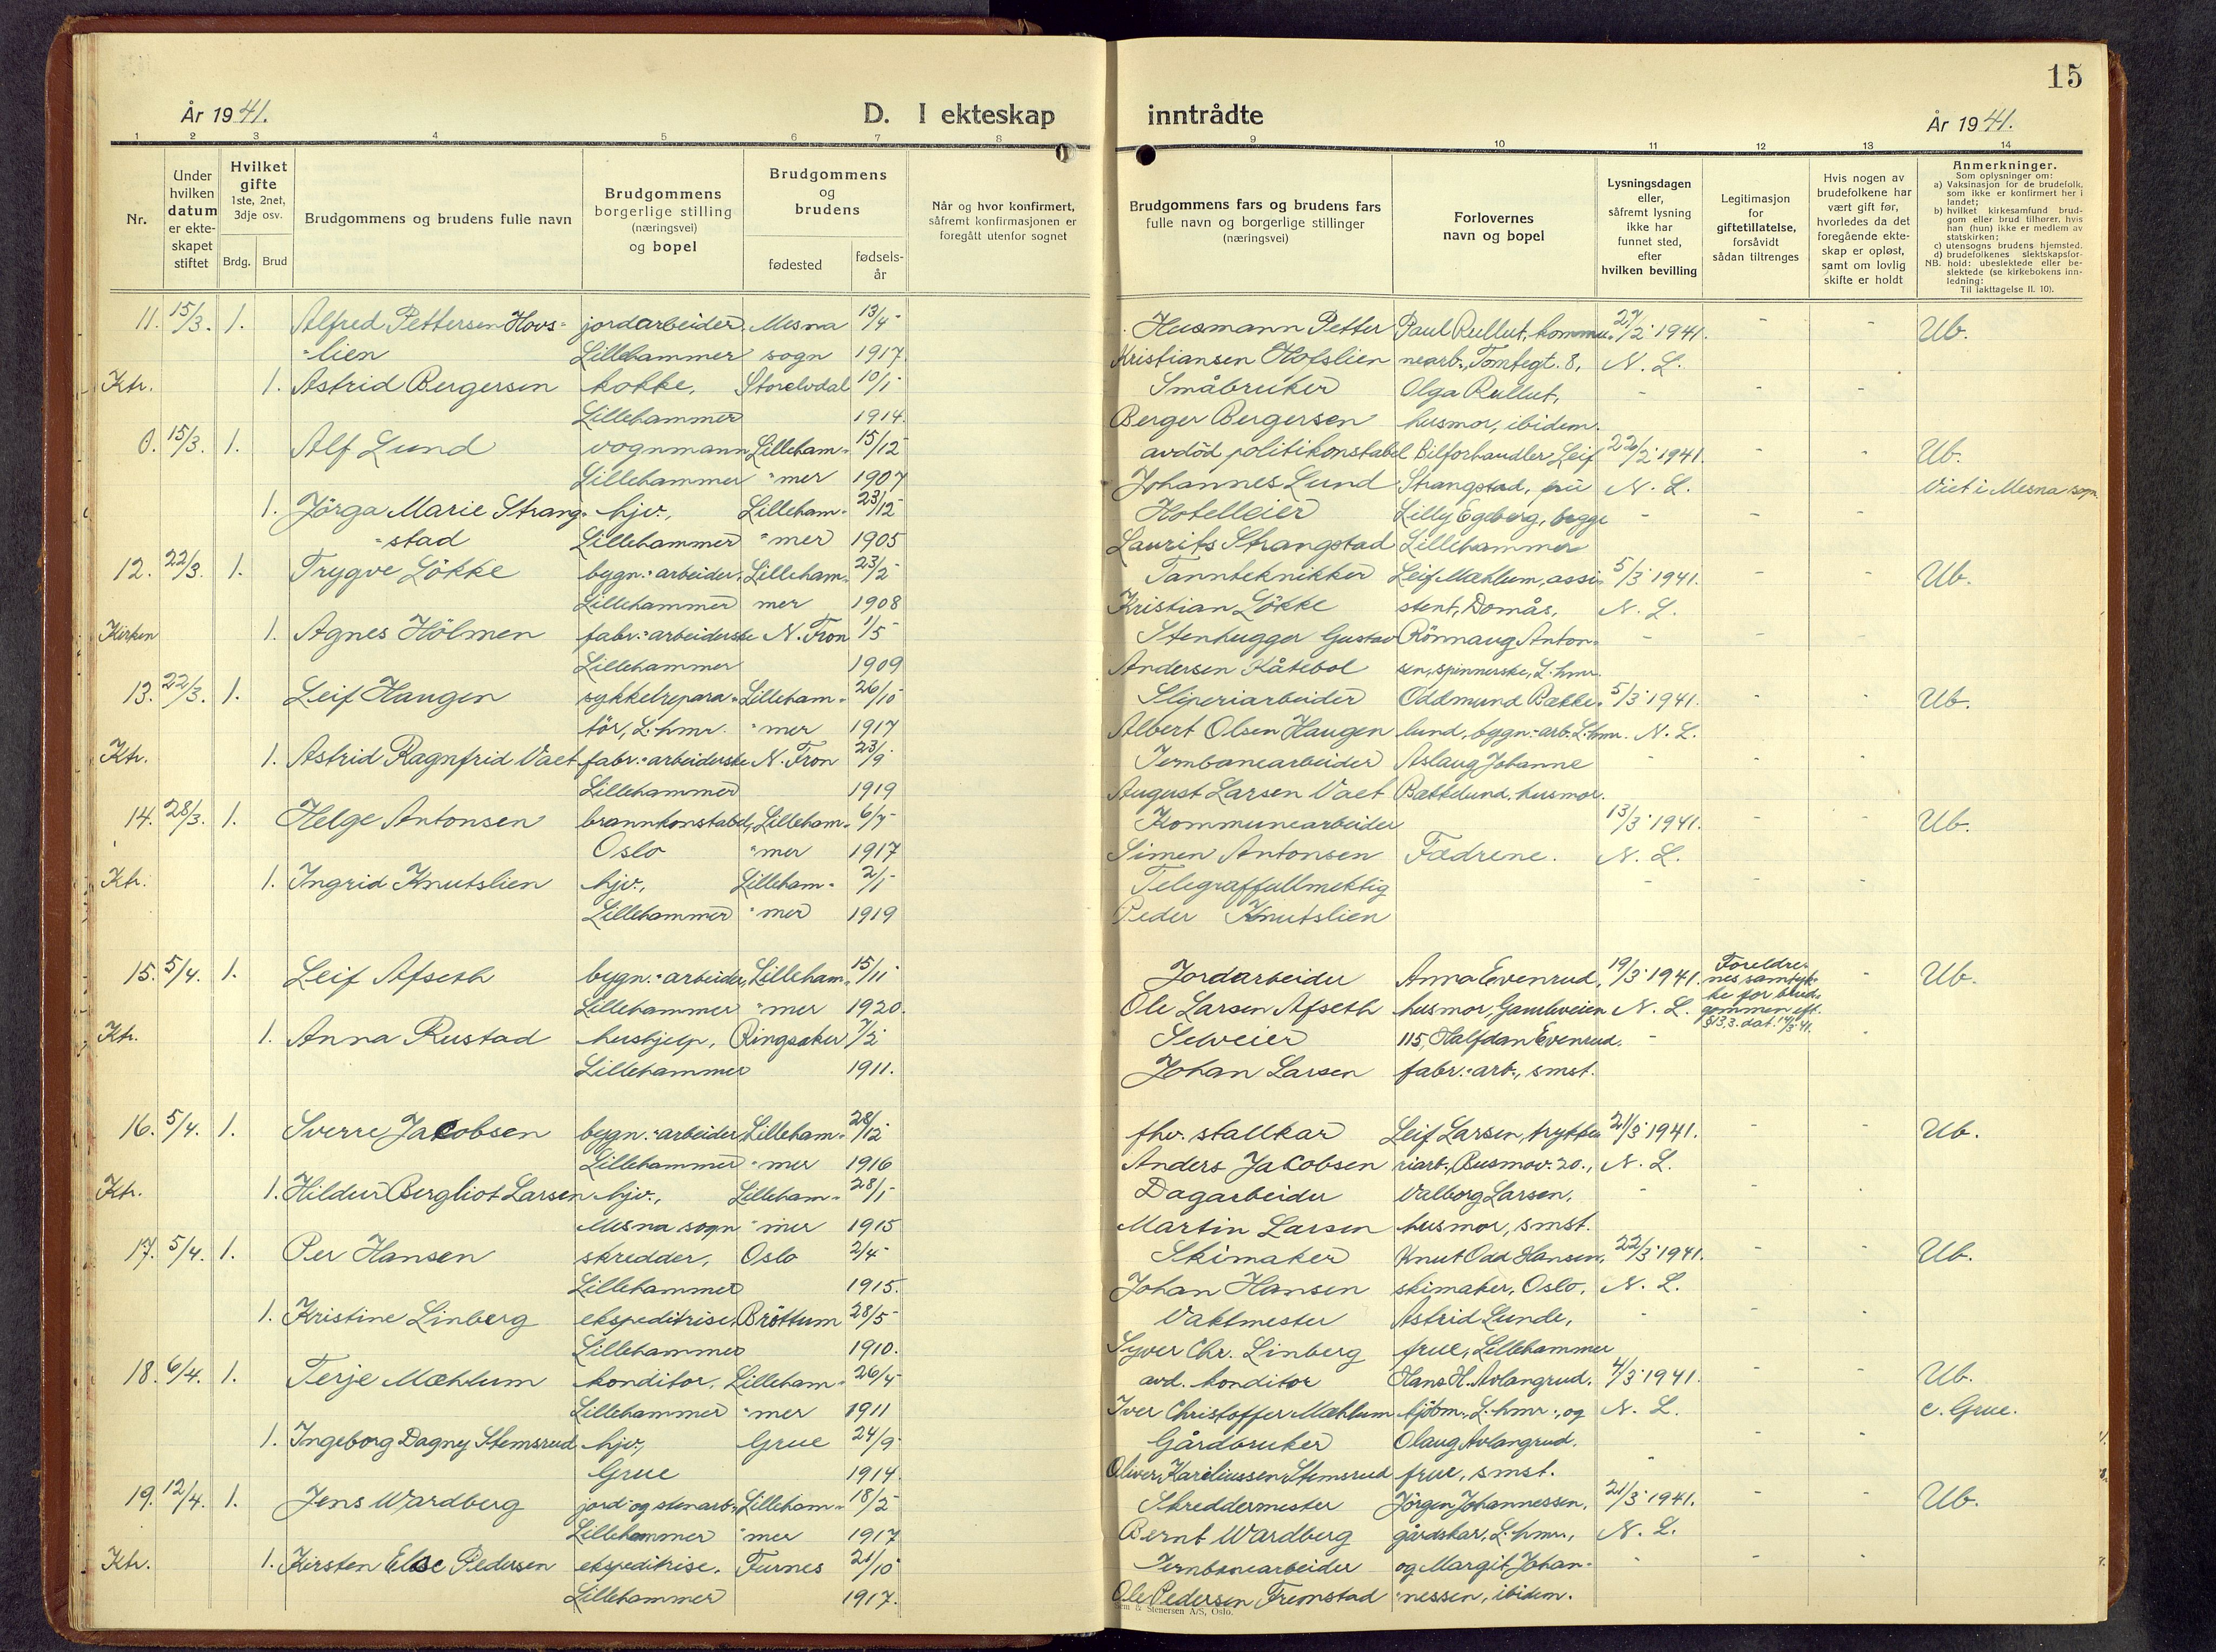 15
År 1941.
D. I ekteskap inntrådte
År 1941.
1 2 3 4 5 6 7 8 9 10 11 12 13 14
Nr.
Under hvilken datum er ekteskapet stiftet
Hvilket gifte 1ste, 2net, 3dje osv.
Brdg. Brud
Brudgommens og brudens fulle navn
Brudgommens borgerlige stilling (næringsvei) og bopel
Brudgommens og brudens
fødested
fødsels-år
Når og hvor konfirmert, såfremt konfirmasjonen er foregått utenfor sognet
Brudgommens fars og brudens fars fulle navn og borgerlige stillinger (næringsvei)
Forlovernes navn og bopel
Lysningsdagen eller, såfremt lysning ikke har funnet sted, efter hvilken bevilling
Legitimasjon for giftetillatelse, forsåvidt sådan tiltrenges
Hvis nogen av brudefolkene har vært gift før, hvorledes da det foregående ekteskap er opløst, samt om lovlig skifte er holdt
Anmerkninger.
Som oplysninger om:
a) Vaksinasjon for de brudefolk, som ikke er konfirmert her i landet;
b) hvilket kirkesamfund brudgom eller brud tilhører, hvis han (hun) ikke er medlem av statskirken;
c) utensogns brudens hjemsted.
d) brudefolkenes slektskapsforhold: ubeslektede eller beslektede (se kirkebokens innledning:
NB.
Til iakttagelse II. 10).
11. 15/3. 1. Alfred Pettersen Hovs- jordarbeider, Mesna 13/4 Husmann Petter Paul Rullut, kommu- 27/2 1941. - - Ub.
-lien Lillehammer sogn 1917. Kristiansen Hofslien nearb., Tomtegt. 8, N. L.
Ktr. 1. Astrid Bergersen kokke, Storelvdal 10/1 Småbruker Olga Rullut, - - -
Lillehammer 1914. Berger Bergersen husmor, ibidem.
0. 15/3. 1. Alf Lund vognmann, Lilleham- 15/12 avdöd politikonstabel Bilforhandler Leif 22/2 1941. - - Ub.
Lillehammer -mer 1907 Johannes Lund Strangstad, fru N. L. Viet i Mesna sogn.
1. Jörga Marie Strang- hjv., Lilleham- 23/12 Hotelleier Lilly Egeberg, begge - - -
-stad Lillehammer -mer 1905 Laurits Strangstad Lillehammer
12. 22/3. 1. Trygve Lökke bygn.-arbeider, Lilleham- 23/2 Tannteknikker Leif Mæhlum, assi- 5/3 1941. - - Ub.
Lillehammer mer 1908 Kristian Lökke stent, Domås, N. L.
Kirken 1. Agnes Hölmen fabr.-arbeiderske N. Fron 1/5 Stenhugger Gustav Rönnaug Anton- - - -
Lillehammer 1909 Andersen Kåtebol sen, spinnerske, L.hmr.
13. 22/3. 1. Leif Haugen sykkelrepara- Lilleham- 26/10 Sliperiarbeider Oddmund Bække- 5/3 1941. - - Ub.
tör, L.hmr. -mer 1917 Albert Olsen Haugen lund, bygn.-arb. L.hmr. N. L.
Ktr. 1. Astrid Ragnfrid Vaet fabr.-arbeiderske N. Fron 23/9 Jernbanearbeider Aslaug Johanne - - -
Lillehammer 1919 August Larsen Vaet Bækkelund, husmor.
14. 28/3. 1. Helge Antonsen brannkonstabel, Lilleham- 6/7 Kommunearbeider 13/3 1941. - - Ub.
Oslo -mer 1917 Simen Antonsen Fædrene. N. L.
Ktr. 1. Ingrid Knutslien hjv., Lilleham- 2/1 Telegraffullmektig - - -
Lillehammer -mer 1919 Peder Knutslien
15. 5/4. 1. Leif Afseth bygn.-arbeider, Lilleham- 15/11 Jordarbeider Anna Evenrud, 19/3 1941. Foreldre- - Ub.
nes samtyk-
ke for brud-
Lillehammer -mer 1920. Ole Larsen Afseth husmor, Gamleveien N. L. gommen eft.
§13,3. dat. 14/3 41.
Ktr. 1. Anna Rustad hushjelp, Ringsaker 7/2 Selveier 115, Halfdan Evenrud, - -
Lillehammer 1911. Johan Larsen fabr.-arb., smst.
16. 5/4. 1. Sverre Jacobsen bygn.-arbeider, Lilleham- 28/12 fhv. stallkar Leif Larsen, trykke- 21/3 1941. - - Ub.
Lillehammer -mer 1916 Anders Jacobsen riarb., Busmov. 20., N. L.
Ktr. 1. Hildur Bergliot Larsen hjv., Lilleham- 28/1 Dagarbeider Valborg Larsen, - - -
Mesna sogn -mer 1915 Martin Larsen husmor, smst.
17. 5/4. 1. Per Hansen skredder, Oslo 2/4 Skimaker Knut Odd Hansen, 22/3 1941. - - Ub.
Lillehammer 1915. Johan Hansen skimaker, Oslo, N. L.
1. Kristine Linberg ekspeditrise, Bröttum 28/5 Vaktmester Astrid Lunde, - - -
Lillehammer 1910. Syver Chr. Linberg frue, Lillehammer
18. 6/4. 1. Terje Mæhlum konditor, Lilleham- 26/4 avd. konditor Hans H. Avlangrud, 4/3 1941. - - Ub.
Lillehammer -mer 1911 Iver Christoffer Mæhlum kjöbm., L.hmr., og N. L. c. Grue.
1. Ingeborg Dagny Stemsrud hjv., Grue 24/9 Gårdbruker Olaug Avlangrud, - -
Grue 1914. Oliver Kareliussen Stemsrud frue, smst. -
19. 12/4. 1. Jens Wardberg jord- og stenarb., Lilleham- 18/2 Skreddermester Jörgen Johannessen, 21/3 1941. - - Ub.
Lillehammer -mer 1917 Bernt Wardberg gårdskar, L.hmr., N. L.
Ktr. 1. Kirsten Else Pedersen ekspeditrise, Furnes 21/10 Jernbanearbeider og Margit Johan- - - -
Lillehammer 1917. Ole Pedersen Fremstad -nessen, ibidem.
Sem & Stenersen A/S, Oslo.